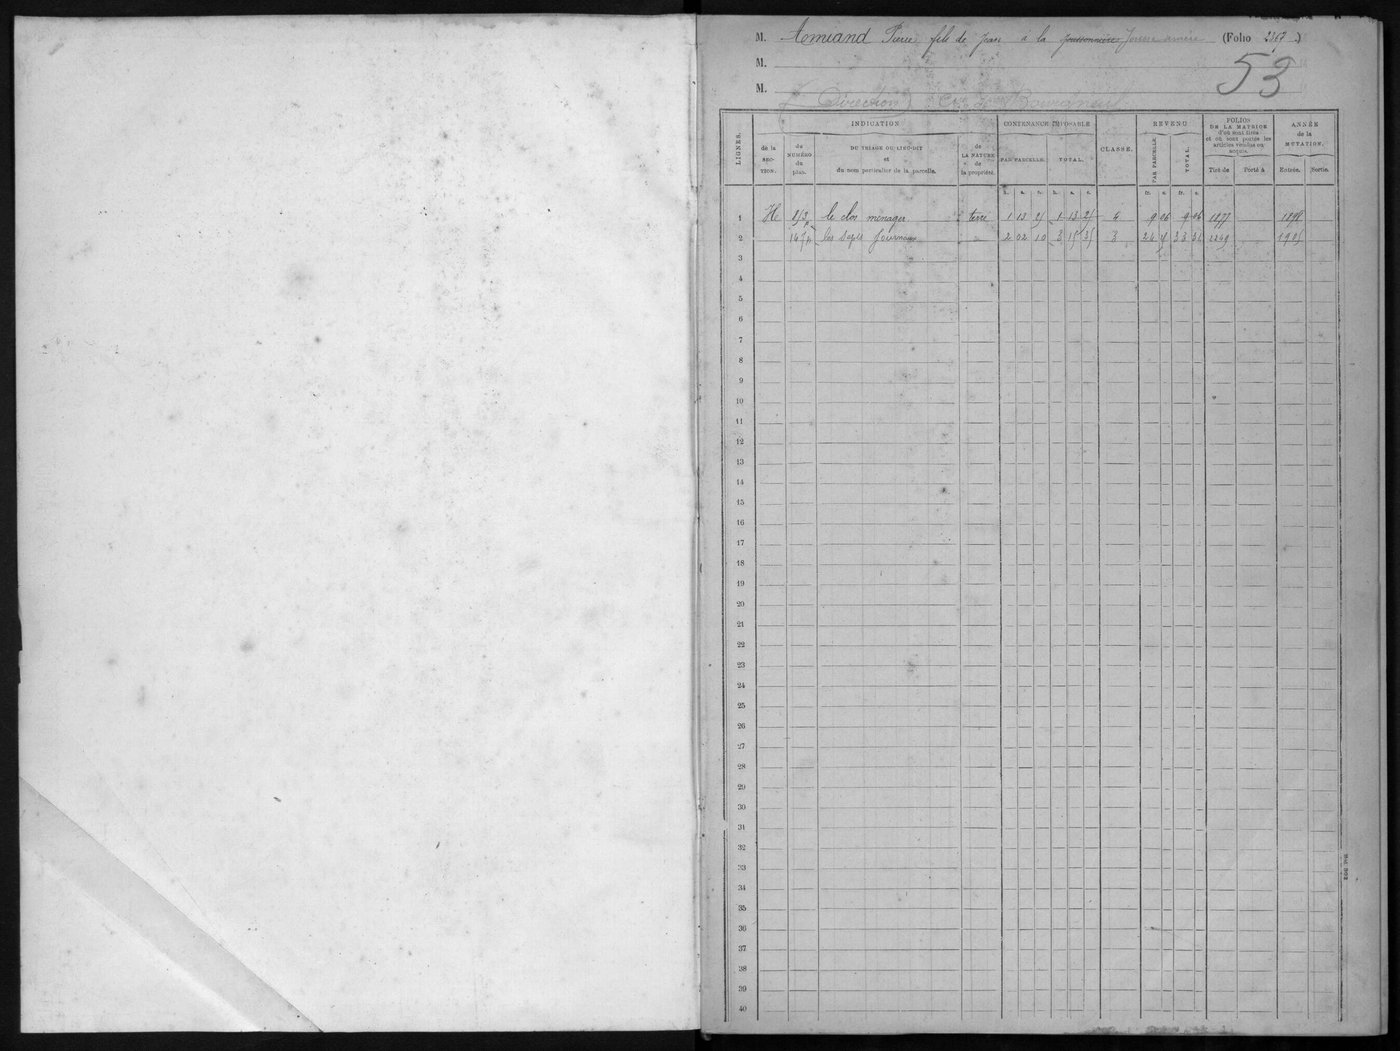 M. Pierre fils de Jean à la (Folio 2367.)
M.
53
M.
LIGNES. INDICATION CONTENANCE IMPOSABLE CLASSE. REVENU FOLIOS DE LA MATRICE d'où sont tirés et où sont portés les articles vendus ou acquis. ANNÉE de la MUTATION.
de la SEC-TION. du NUMÉRO du plan. DU TRIAGE OU LIEU-DIT et du nom particulier de la parcelle. de LA NATURE de la propriété. PAR PARCELLE. TOTAL. PAR PARCELLE. TOTAL. Tiré de Porté à Entrée. Sortie.
h. a. c. h. a. c. fr. c. fr. c.
1 He le clos menager terre 1 13 25 1 13 25 4 9 06 9 06 1877
2 les Septs Journaux 2 02 10 3 15 35 3 1249 1905
3
4
5
6
7
8
9
10
11
12
13
14
15
16
17
18
19
20
21
22
23
24
25
26
27
28
29
30
31
32
33
34
35
36
37
38
39
40